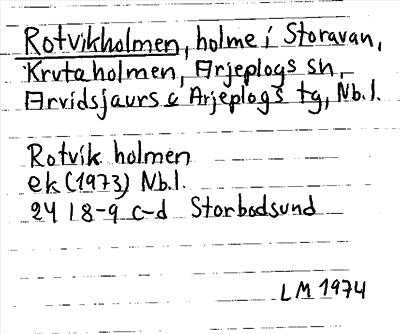 Rotvikholmen, holme i Storavan,
Krutaholmen, Arjeplogs sn,
Arvidsjaurs & Arjeplogs tg, Nb.l.
Rotvik holmen
ek (1973) Nb.l.
24 I 8-9 c-d Storbodsund
LM 1974